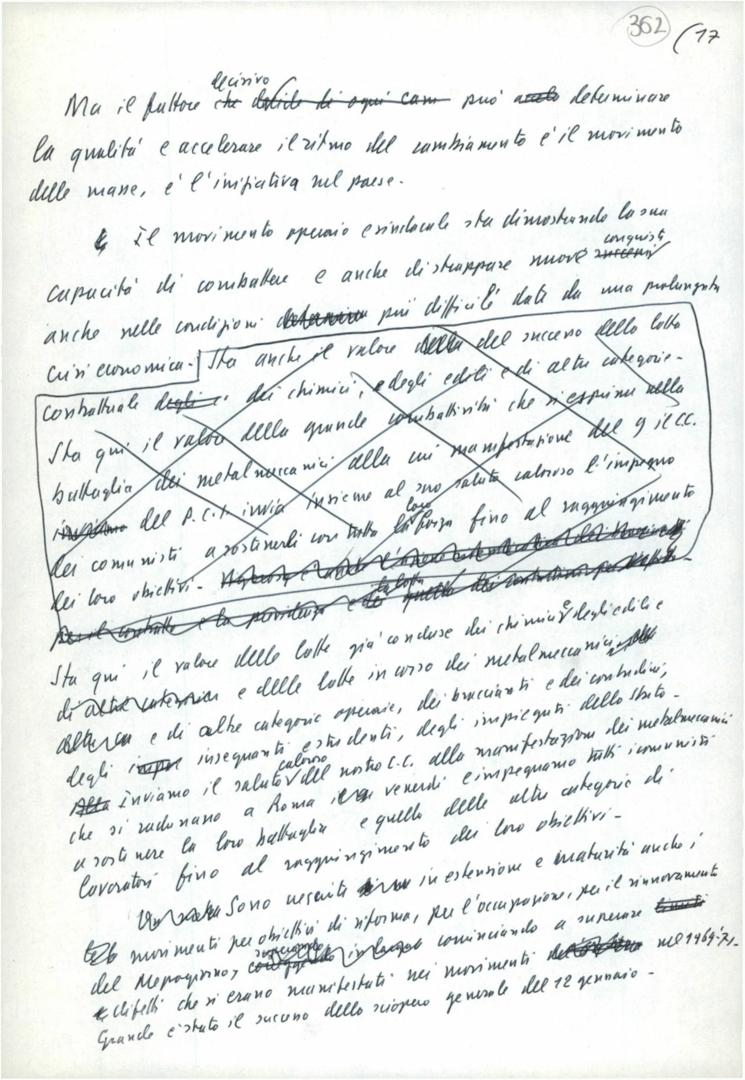 362 (17
decisivo
Ma il fattore che decide di ogni cam può determinare
la qualità e accelerare il ritmo del cambiamento è il movimento
delle masse, è l'iniziativa nel paese.
Il movimento operaio e sindacale sta dimostrando la sua
conquisti
capacità di combattere e anche di strappare nuove successi
anche nelle condizioni più difficili date da una prolungata
crisi economica. Sta anche il valore della del successo delle lotte
contrattuale degli dei chimici, e degli edili e di altre categorie.
Sta qui il valore della grande combattività che si esprime nella
battaglia dei metalmeccanici alla cui manifestazione del 9 il C.C.
del P.C.I. invia insieme al suo saluto caloroso l'impegno
loro
dei comunisti a sostenerli con tutta la forza fino al raggiungimento
dei loro obiettivi.
per il contratto e la
Sta qui il valore delle lotte già concluse dei chimici e degli edili e
di altre categorie e delle lotte in corso dei metalmeccanici
e di altre categorie operaie, dei braccianti e dei contadini,
degli insegnanti e studenti, degli impiegati dello Stato.
caloroso
Inviamo il saluto del nostro C.C. alla manifestazione dei metalmeccanici
che si radunano a Roma venerdì e impegnamo tutti i comunisti
a sostenere la loro battaglia e quella delle altre categorie di
lavoratori fino al raggiungimento dei loro obiettivi.
Sono cresciuti in estensione e maturità anche i
movimenti per obiettivi di riforma, per l'occupazione, per il rinnovamento
del Mezzogiorno, cominciando a superare
difetti che si erano manifestati nei movimenti nel 1969-71.
Grande è stato il successo dello sciopero generale del 12 gennaio.